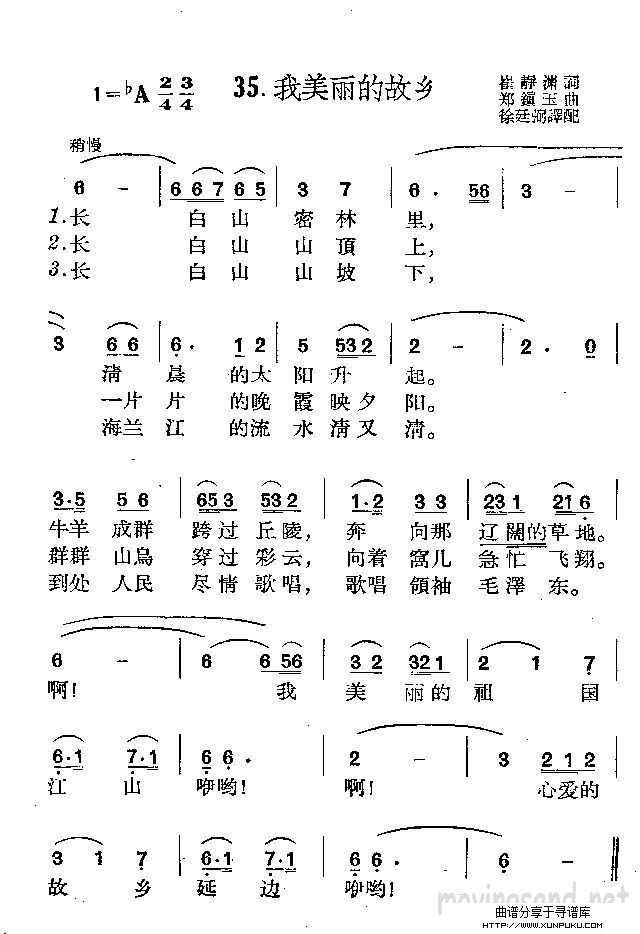 1=♭A 2/4 3/4
35. 我美丽的故乡
崔靜渊詞
郑鎭玉曲
徐廷弼譯配
稍慢
6 - | 6 6 7 6 5 | 3 7 | 6 . 56 |
1.长 白山 密林 里,
2.长 白山 山頂 上,
3.长 白山 山坡 下,
3 6 6 | 6 . 1 2 | 5 532 | 2 - | 2 . 0 |
淸 晨 的太 阳升 起。
一片 片 的晚 霞映夕 阳。
海兰 江 的流 水淸又 淸。
3·5 5 6 | 653 532 | 1·2 3 3 | 231 216 |
牛羊 成群 跨过 丘陵, 奔 向那 辽闊的草地。
群群 山鳥 穿过 彩云, 向着 窩儿 急忙 飞翔。
到处 人民 尽情 歌唱, 歌唱 領袖 毛澤 东。
6 - | 6 6 56 | 3 2 321 | 2 1 7 |
啊! 我 美 丽的 祖 国
6·1 7·1 | 6 6 . | 2 - | 3 2 1 2 |
江 山 咿哟! 啊! 心爱的
3 1 7 | 6·1 7·1 | 6 6 . | 6 - ‖
故 乡 延 边 咿哟!
movingsand.net
曲谱分享于寻谱库
HTTP://WWW.XUNPUKU.COM